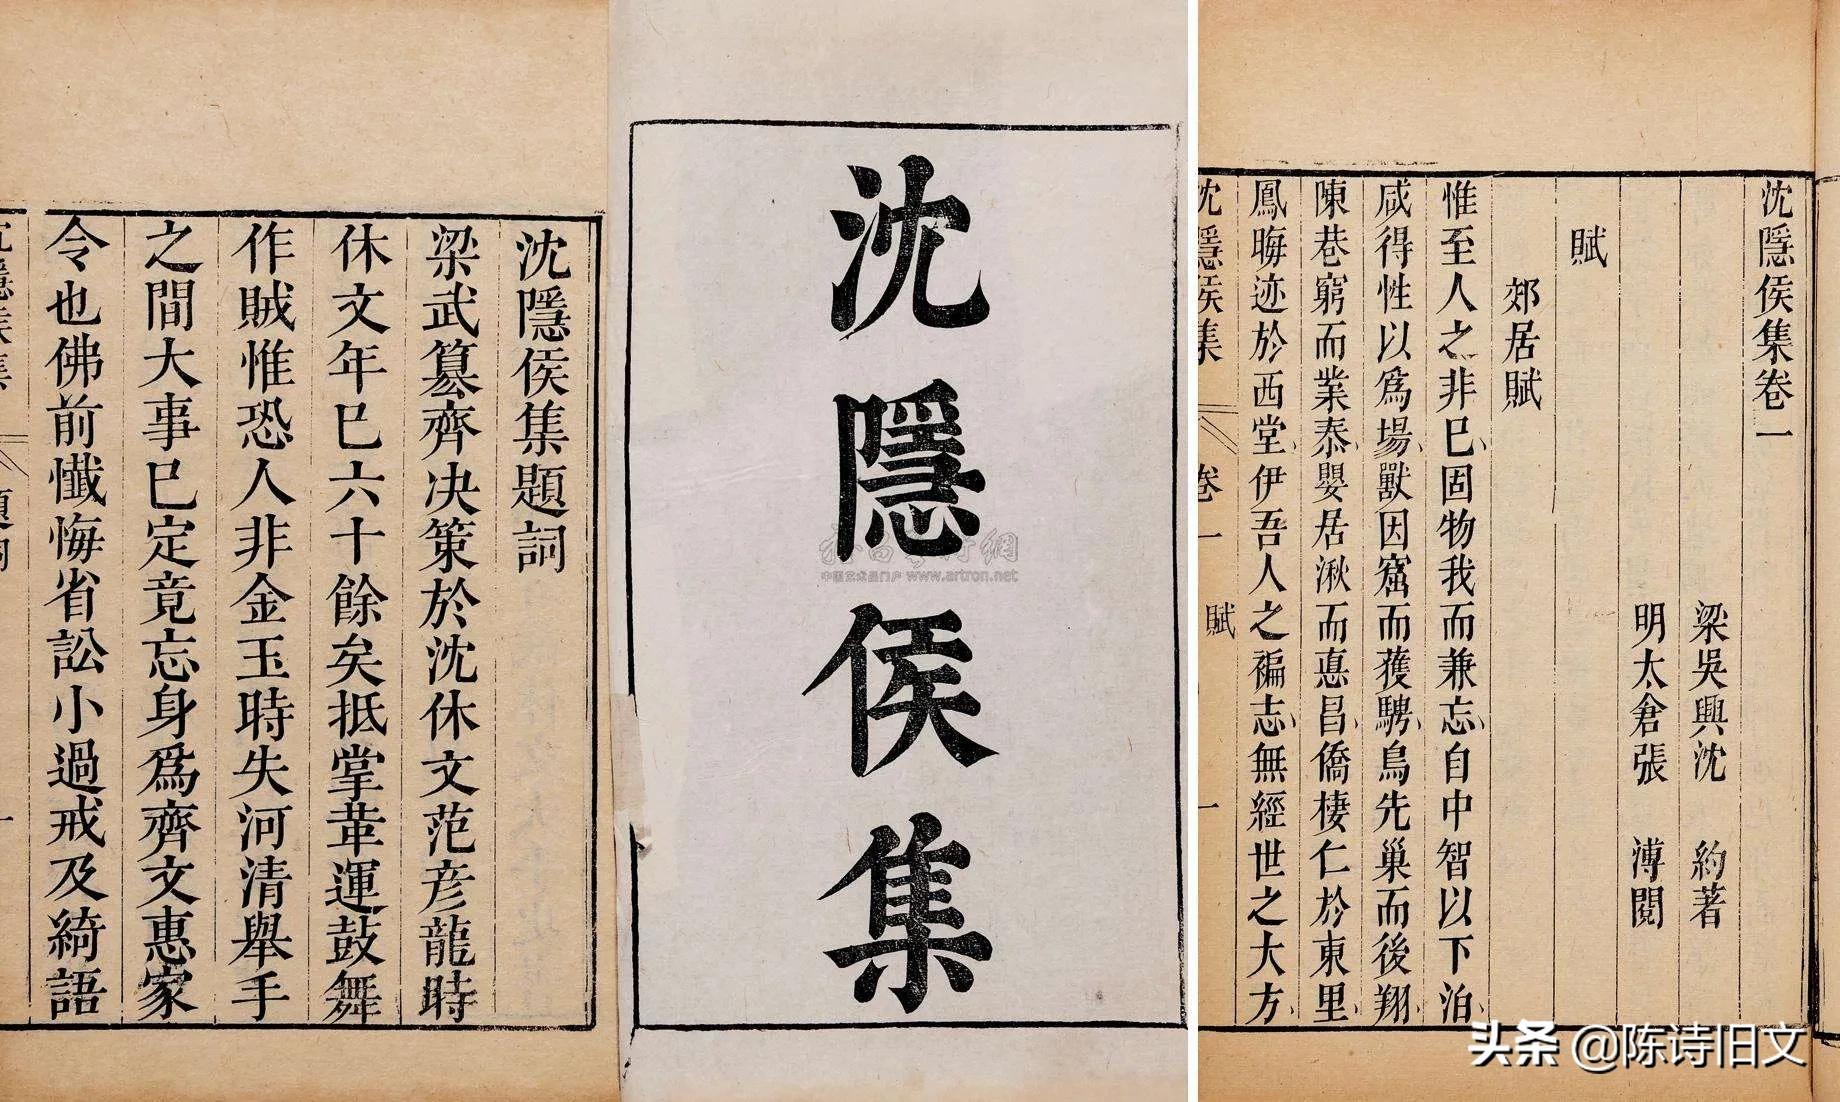 沈隱侯集題詞
梁武簒齊決策於沈休文范彦龍時
休文年已六十餘矣抵掌革運鼓舞
作賊惟恐人非金玉時失河清舉手
之間大事已定竟忘身爲齊文惠家
令也佛前懺悔省訟小過戒及綺語
沈隱侯集
沈隱侯集卷一
梁吳興沈 約著
明太倉張 溥閱
賦
郊居賦
惟至人之非已固物我而兼忘自中智以下洎
咸得性以爲場獸因窟而獲騁鳥先巢而後翔
陳巷窮而業泰嬰居湫而悳昌僑棲仁於東里
鳳晦迹於西堂伊吾人之褊志無經世之大方
沈隱侯集 卷一 賦 一
www.artron.net
头条 @陈诗旧文